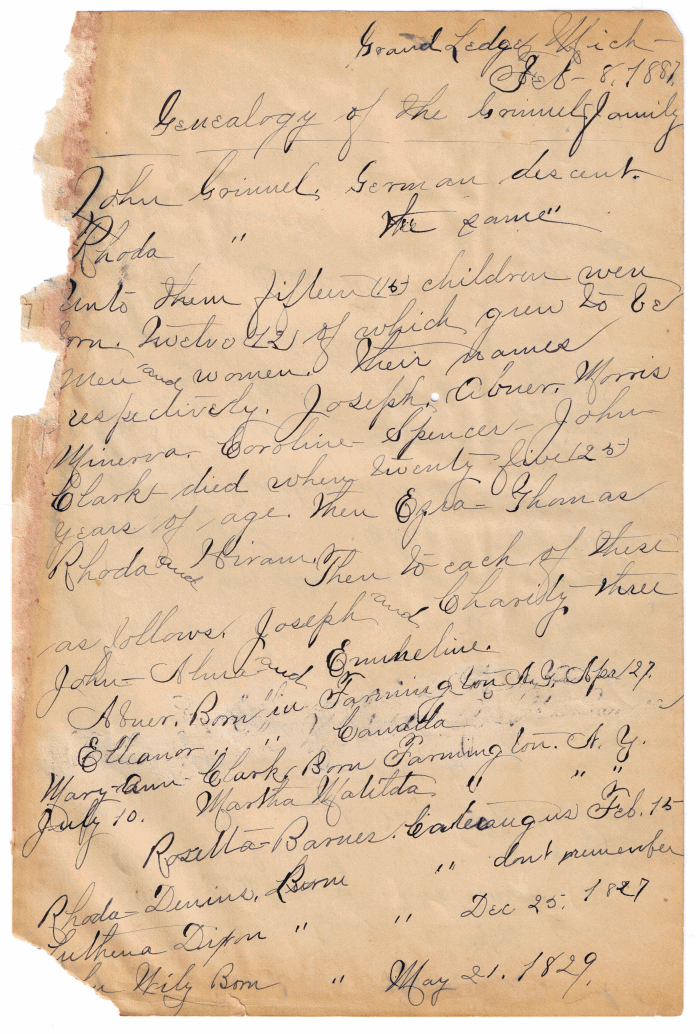 Grand Ledge, Mich-
Feb- 8, 1887.
Genealogy of the Grinnel family
John Grinnel, German descent.
Rhoda " the same"
Unto them fifteen (15) children were
orn. Twelve (12) of which grew to be
men and women. Their names
respectively. Joseph. Abner. Morris
Minerva. Caroline- Spencer- John-
Clark- died when twenty five (25)
years of age. Then Ezra- Thomas
Rhoda and Hiram. Then to each of these
as follows. Joseph and Charity three
John- Alma and Emmeline.
Abner. Born in Farmington N.Y. Apr 27.
Elleanor " " Canada
Mary-ann- Clark, Born Farmington. N. Y.
July 10. Martha Matilda " " "
Rosetta- Barnes. Cateraugus Feb. 15
Rhoda- Denins. Born " don't remember
Luthena Dixon " " Dec 25. 1827
Wily Born " May 21. 1829.